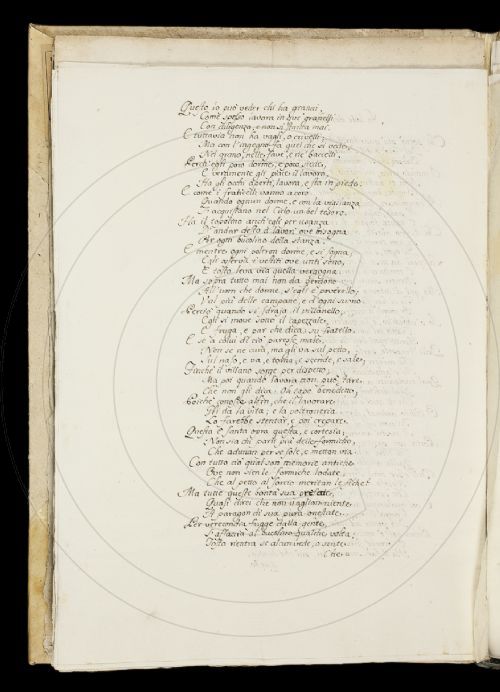 Questo lo può veder chi ha granai;
Come spesso lavora in que' granelli
Con diligenza, e non si stanca mai.
E tuttavia non ha vagli, o crivelli;
Ma con l'ingegno fa quel che si vede,
Nel grano, nelle fave, e ne' baccelli.
Perch' egli poco dorme, e poco siede,
E veramente gli piace il lavoro,
Ha gli occhi aperti, lavora, e sta in piede.
E come i fraticelli vanno a coro
Quando ognun dorme, e con la vigilanza
Si acquistano nel Cielo un bel tesoro.
Ha il topolino anch' egli per usanza
D'andar desto a' lavori ove bisogna
Per ogni bucolino della stanza.
E mentre ogni poltron dorme, e si sogna,
Egli osserva i vestiti ove unti sono,
E tosto leva via quella vergogna.
Ma sopra tutto mai non dà perdono
All' uom che dorme, s'egli è poverello,
Val più delle campane, e d'ogni suono.
Perciò quando si sdraja il villanello,
Egli si move sotto il capezzale,
E fruga, e par che dica, su fratello.
E se a colui di ciò paresse male,
Non se ne cura, ma gli va sul petto,
Sul naso, e va, e torna, e scende, e sale,
Finchè il villano sorge per dispetto,
Ma poi quando lavora non può fare,
Che non gli dica: Oh capo benedetto,
Poichè conosce alfin, che il lavorare
Gli dà la vita; e la poltroneria
Lo farebbe stentar, e poi crepare.
Questa è santa opra questa, e cortesia;
Non sia chi parli più delle formiche,
Che adunan per se sole, e metton via.
Con tutto ciò quai son memorie antiche
Ove non sien le formiche lodate,
Che al petto al sorcio meritan le fiche?
Ma tutte queste bontà sua
Quasi direi che non vaglion niente
A paragon di sua pura onestate.
Per verecondia fugge dalla gente,
S'affaccia al bucolino qualche volta;
Tosto rientra se alcun vede, o sente.
Che